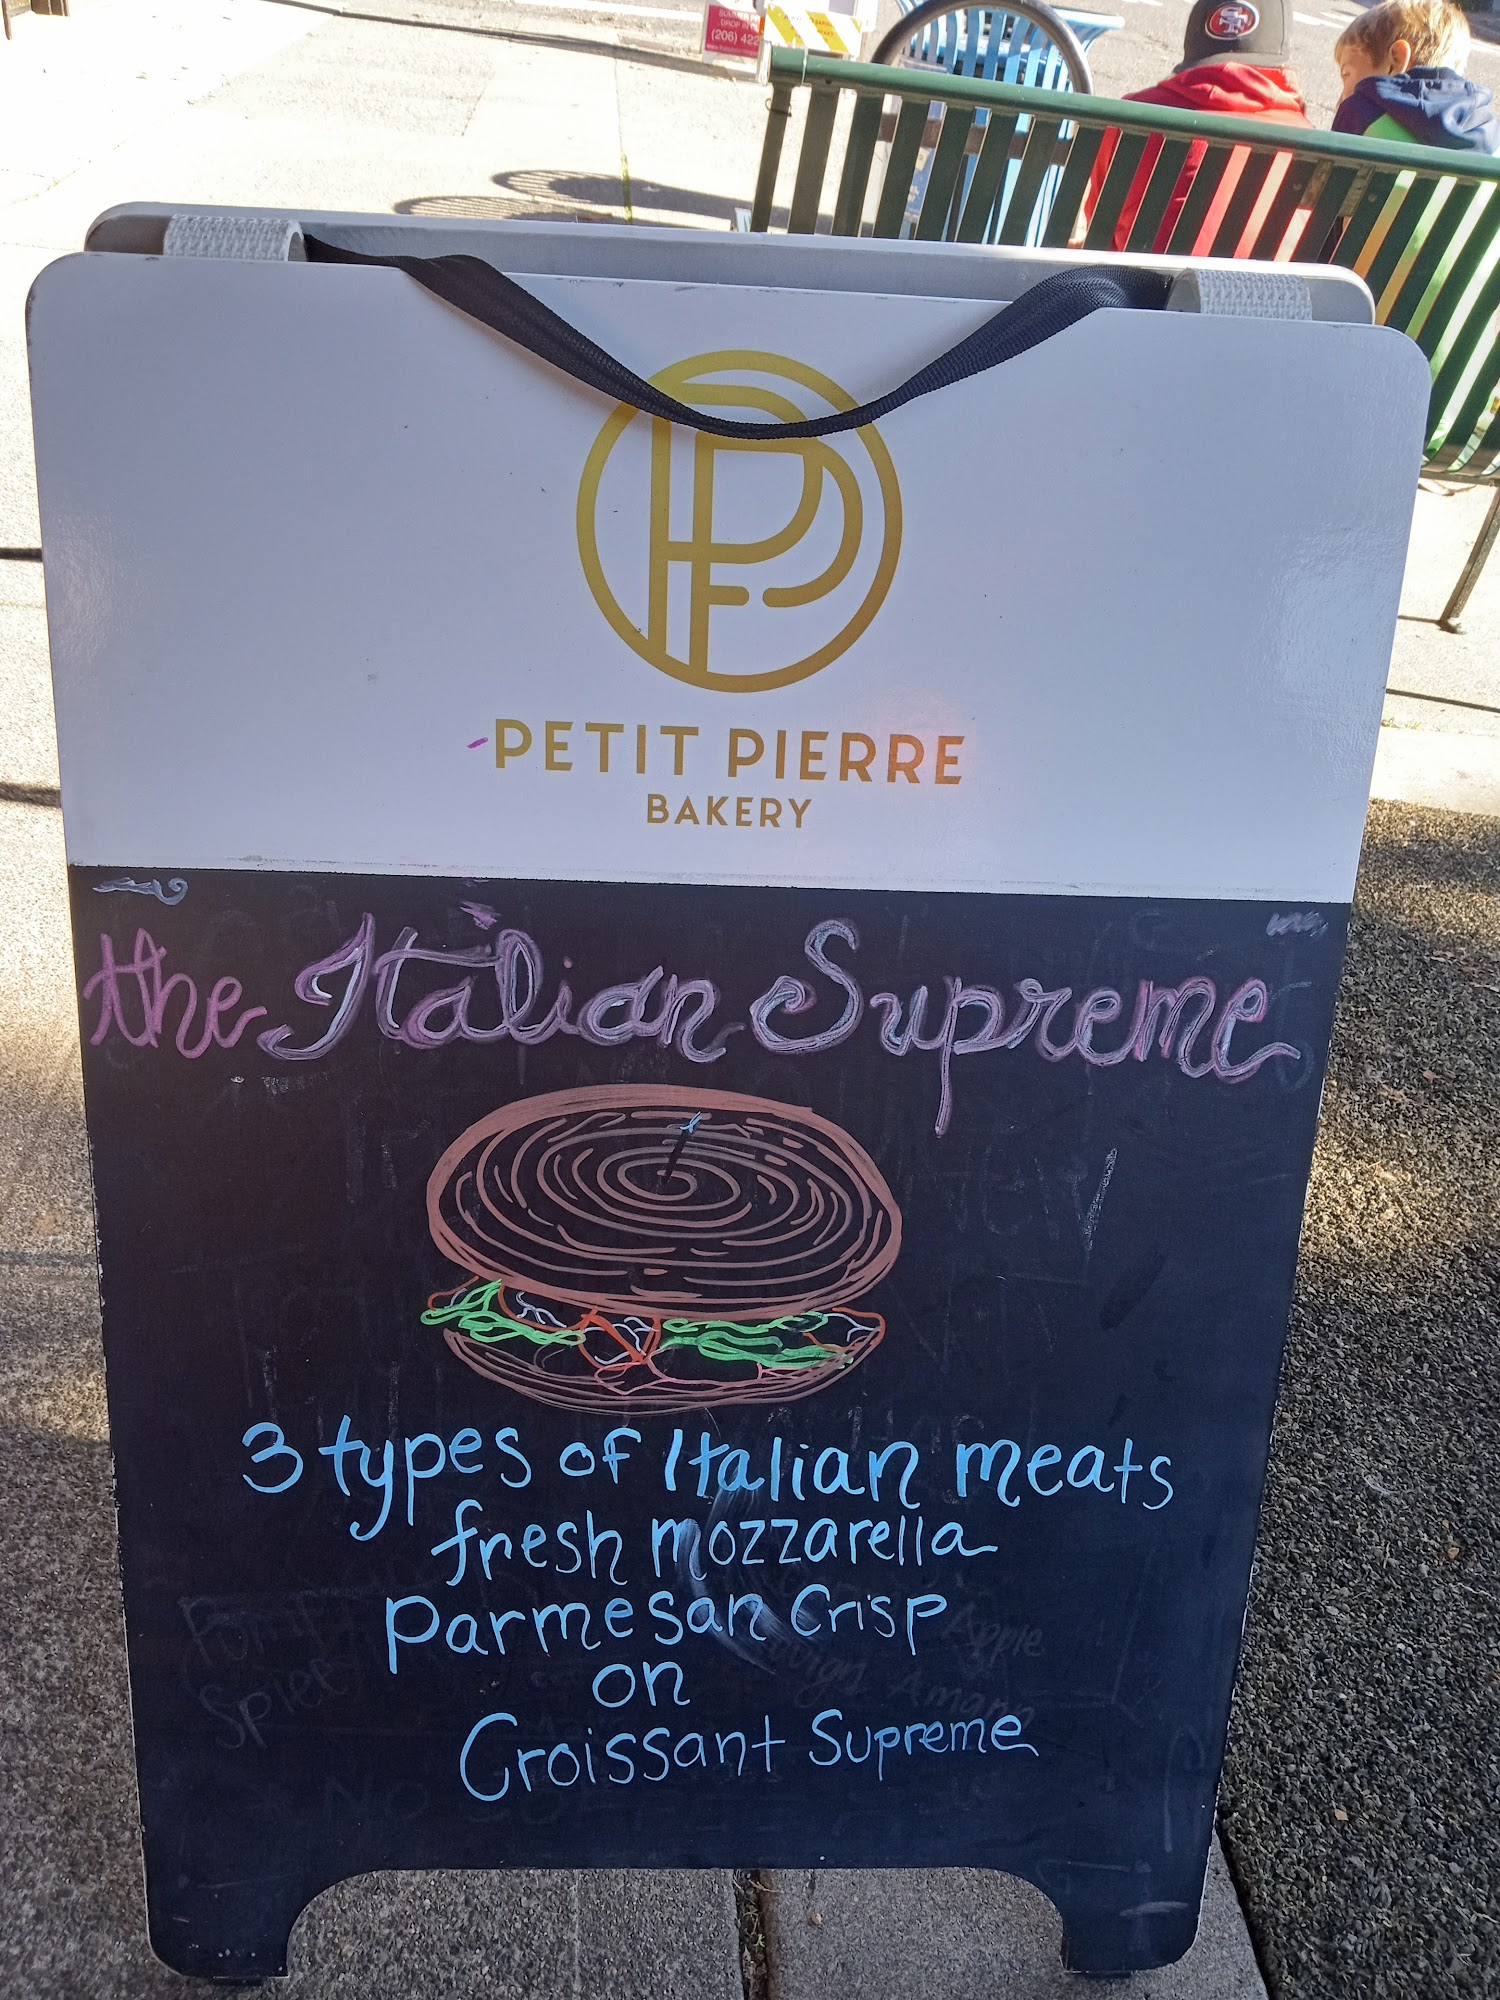 (206) 422
PETIT PIERRE
BAKERY
the Italian Supreme
3 types of Italian meats
fresh mozzarella
parmesan Crisp
on
Croissant Supreme
Apple
Amann